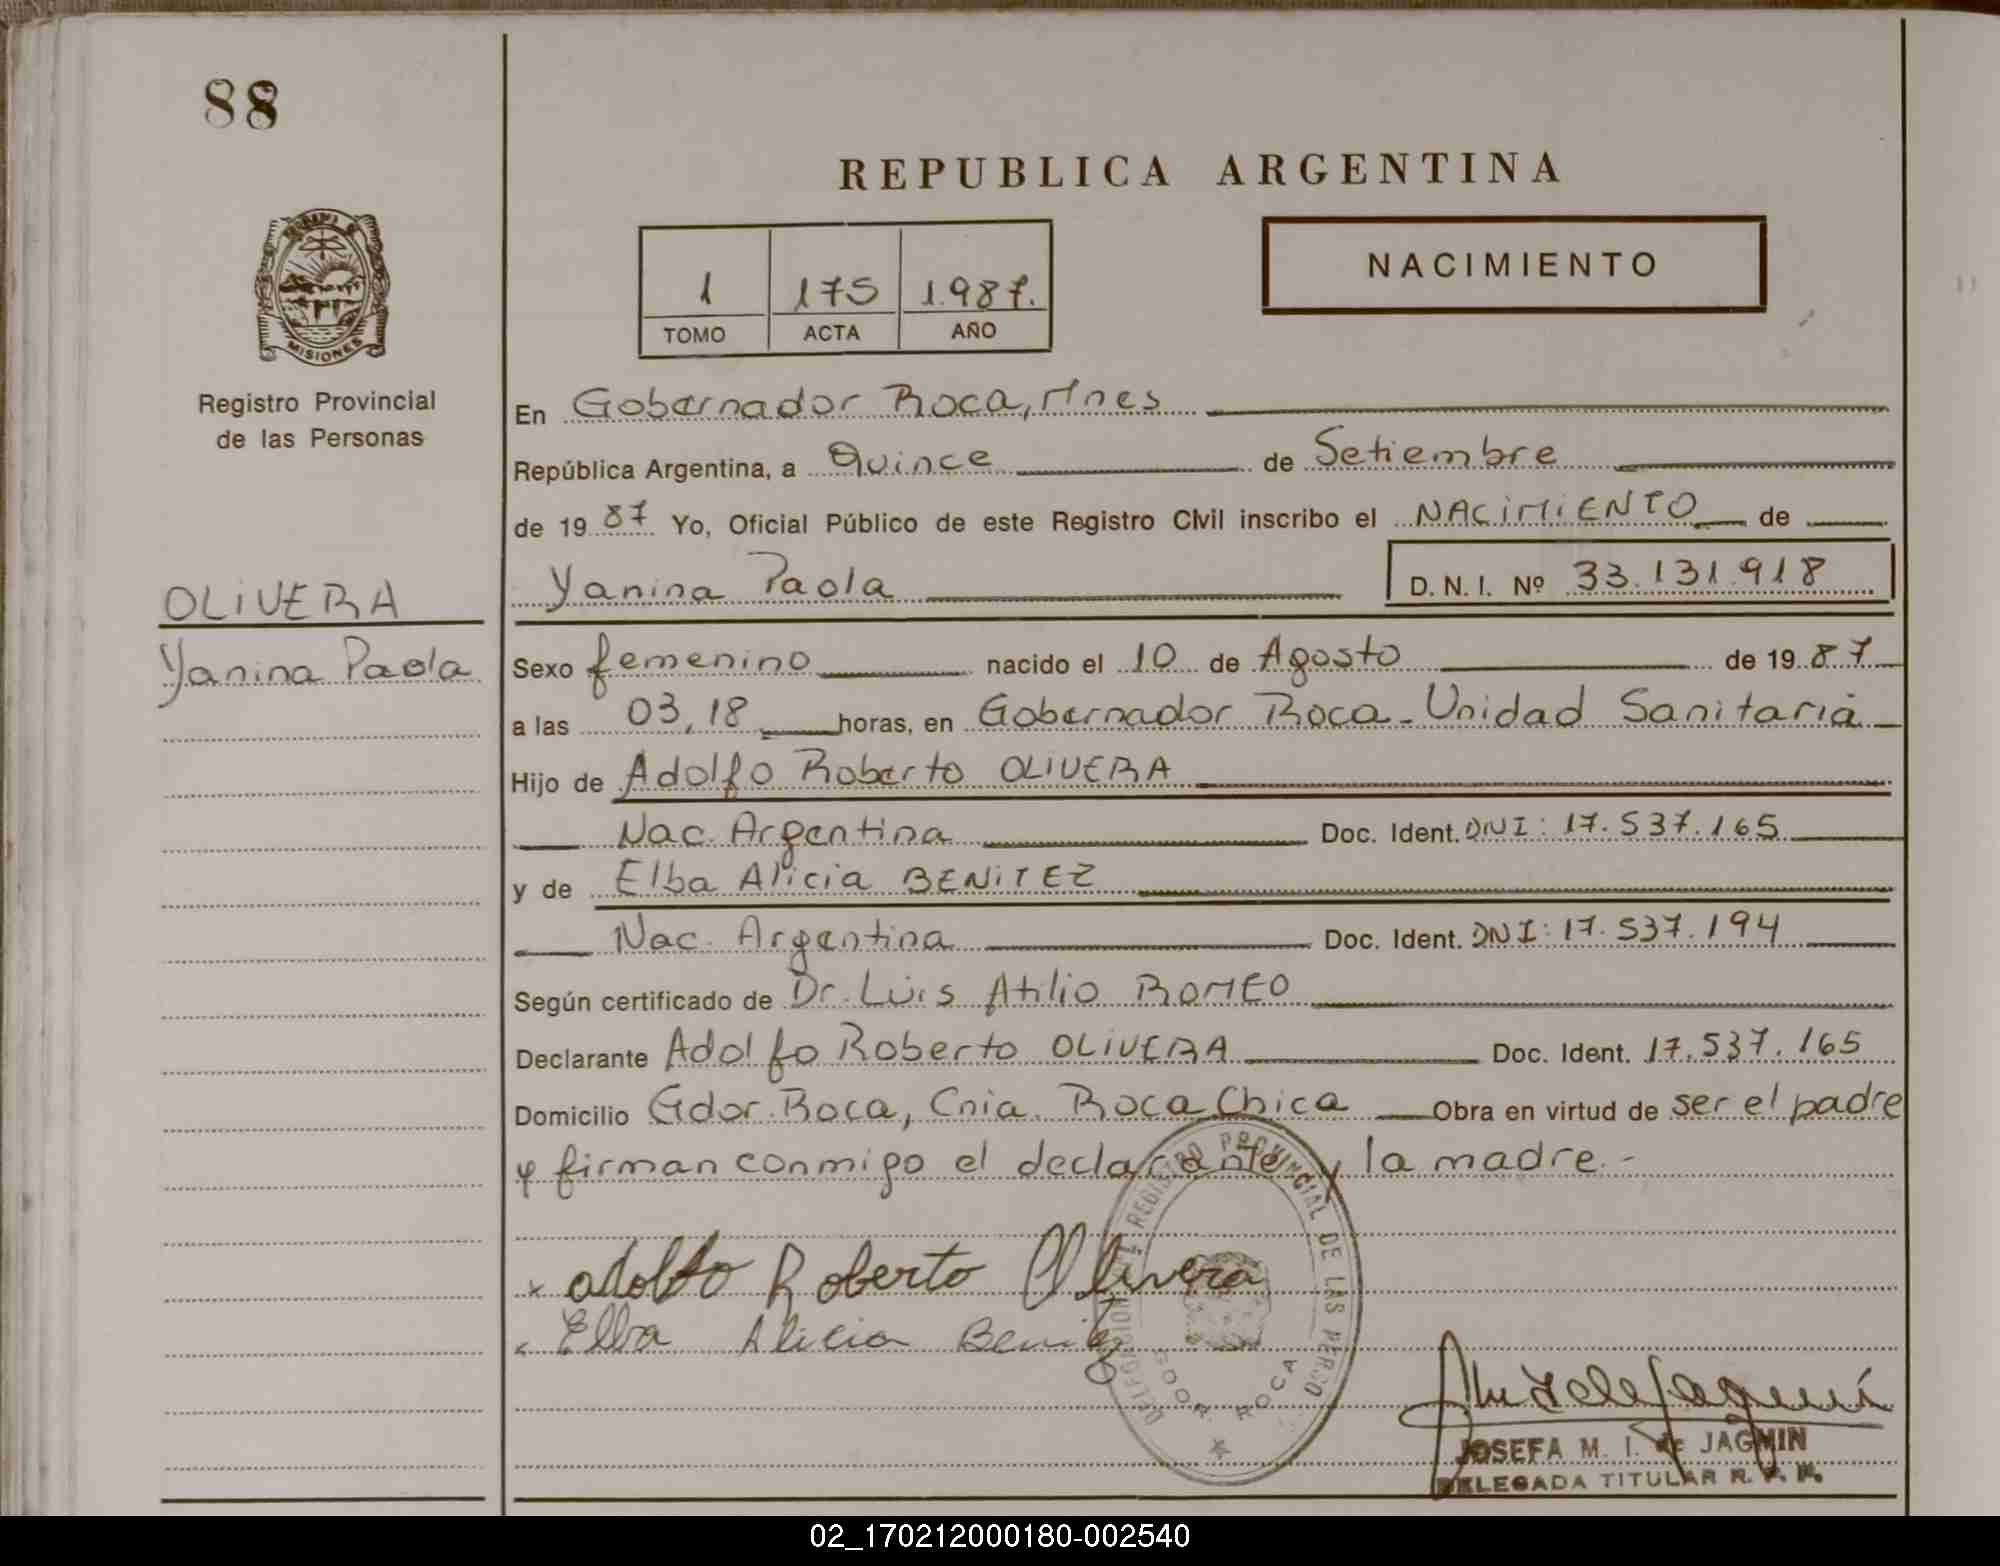 88
REPUBLICA ARGENTINA
NACIMIENTO
1 175 1.987.
TOMO ACTA AÑO
MISIONES
Registro Provincial
de las Personas
En Gobernador Roca, Mnes
República Argentina, a Quince de Setiembre
de 19 87 Yo, Oficial Público de este Registro Civil inscribo el NACIMIENTO de
Yanina Paola D. N. I. Nº 33.131.918
OLIVERA
Yanina Paola
Sexo femenino nacido el 10 de Agosto de 19 87
a las 03,18 horas, en Gobernador Roca - Unidad Sanitaria
Hijo de Adolfo Roberto OLIVERA
Nac. Argentina Doc. Ident. DNI: 17.537.165
y de Elba Alicia BENITEZ
Nac. Argentina Doc. Ident. DNI: 17.537.194
Según certificado de Dr. Luis Atilio ROMEO
Declarante Adolfo Roberto OLIVERA Doc. Ident. 17.537.165
Domicilio Gdor. Roca, Cnia. Roca Chica Obra en virtud de ser el padre
y firman conmigo el declarante y la madre.-
x Adolfo Roberto Olivera
Elba Alicia Benitez
REGISTRO PROVINCIAL DE LAS PERSO
GDOR. ROCA
JOSEFA M. I. de JAGMIN
DELEGADA TITULAR R. P. P.
02_170212000180-002540